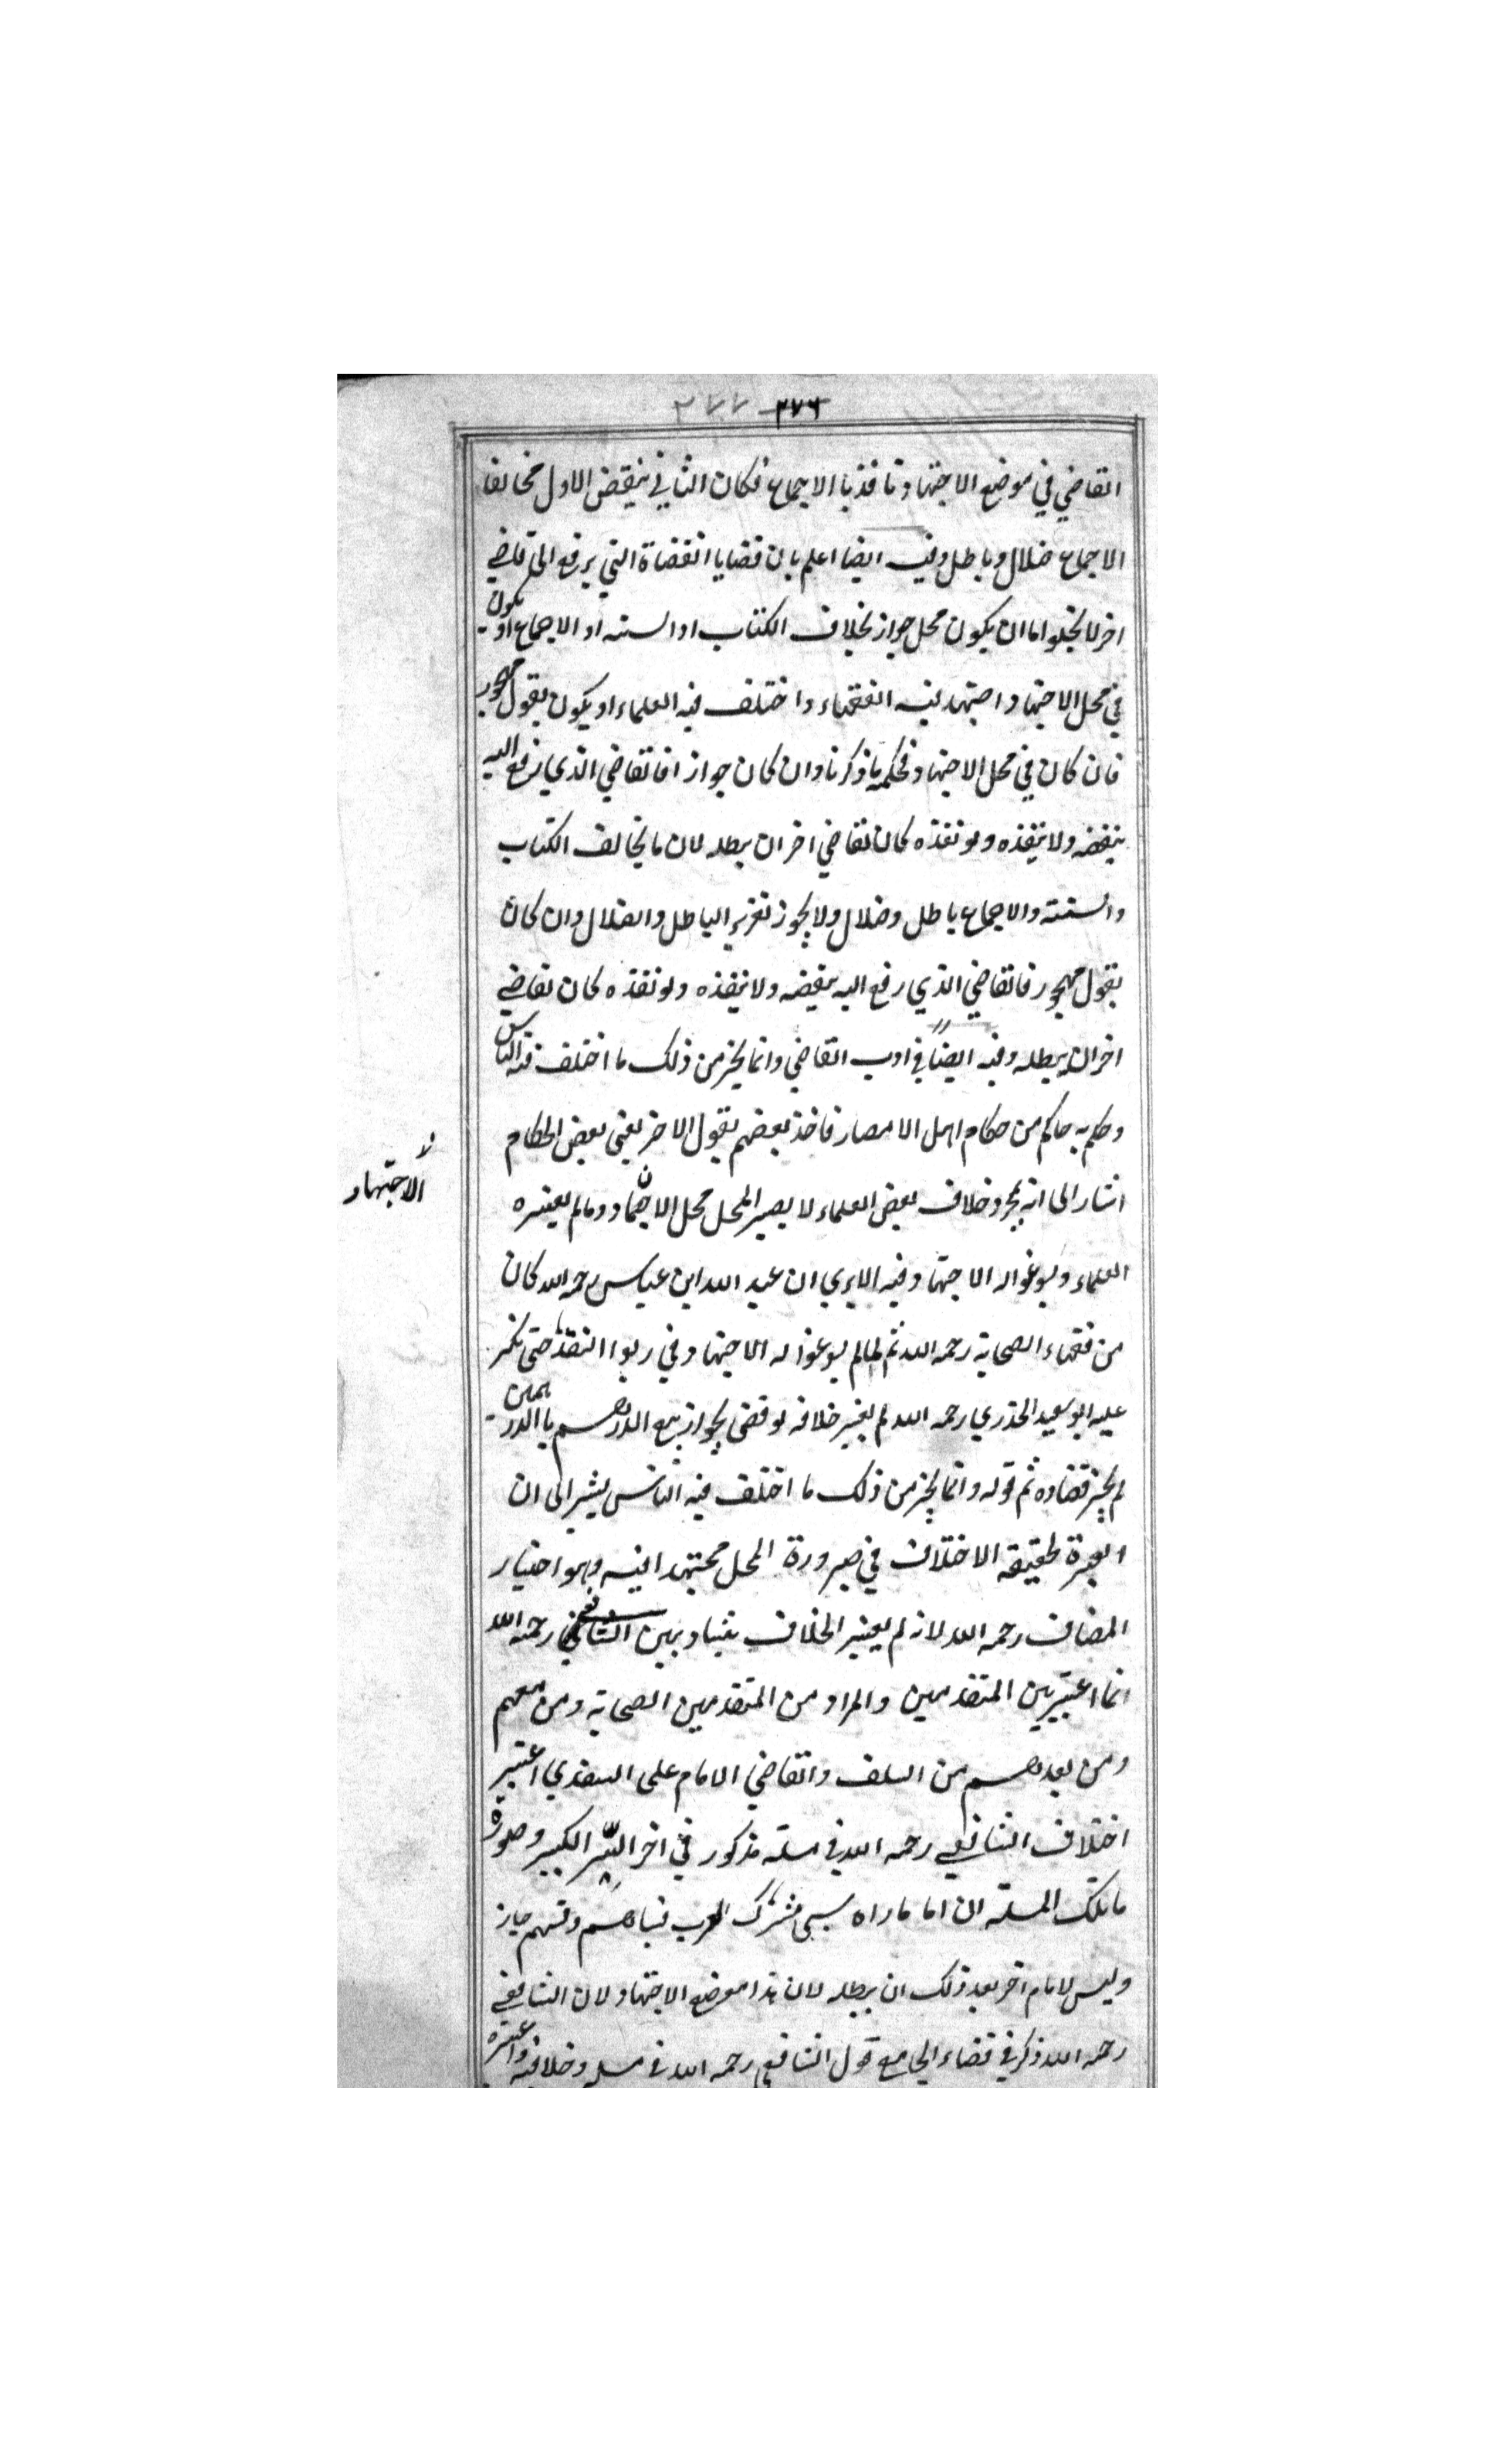 ٢٧٦ ٢٧٧
القاضي في موضع الاجتهاد نافذ بالاجماع فكان الثاني ينقض الاول مخالفا
الاجماع ضلال وباطل وفيه ايضا اعلم بان قضايا القضاة التي يرفع الى قاضي
اخر لا يخلوا اما ان يكون محل جواز بخلاف الكتاب او السنة او الاجماع او يكون
في محل الاجتهاد واجتهد فيه الفقهاء واختلف فيه العلماء او يكون بقول مهجور
فان كان في محل الاجتهاد فحكمه ما ذكرنا وان كان جواز افالقاضي الذي رفع اليه
ينقضه ولا ينفذه ولو نفذه كان لقاضي اخر ان يبطله لان ما يخالف الكتاب
والسنة والاجماع باطل وضلال ولا يجوز تقرير الباطل والضلال وان كان
بقول مهجور فالقاضي الذي رفع اليه ينقضه ولا ينفذه ولو نفذه كان لقاضي
اخر ان يبطله وفيه ايضاً في ادب القاضي وانما يجز من ذلك ما اختلف فيه الناس
وحكم به حاكم من حكام اهل الامصار فاخذ بعضهم بقول الاخر يعني بعض الحكام
اشار الى انه بمجرد خلاف بعض العلماء لا يصير المحل محل الاجتهاد وما لم يعتبره
الاجتهاد
العلماء ويسوغوا له الاجتهاد وفيه الا يري ان عبد الله ابن عباس رحمه الله كان
من فقهاء الصحابة رحمه الله ثم لما لم يسوغوا له الاجتهاد في ربوا النقد حتى نكر
عليه ابو سعيد الخذري رحمه الله لم يعتبر خلافه لو قضى بجواز بيع الدرهم باالدرهمين
لم يجز قضاوه ثم قوله وانما يجز من ذلك ما اختلف فيه الناس يشير الى ان
العبرة لحقيقة الاختلاف في صيرورة المحل مجتهدا فيه وهو اختيار
المضاف رحمه الله لانه لم يعتبر الخلاف بيننا وبين الشافعي رحمه الله
انما اعتبر بين المتقدمين والمراد من المتقدمين الصحابة ومن معهم
ومن بعدهم من السلف والقاضي الامام على السغدي اعتبر
اختلاف الشافعي رحمه الله في مسله مذكور في اخر السير الكبير وصورة
ما تلك المسلة ان اما ما راه سبى مشرك العرب فسباهم وقسمهم جاز
وليس لامام اخر بعد ذلك ان يبطله لان هذا موضع الاجتهاد لان الشافعي
رحمه الله ذكر في قضاء الجامع قول الشافعي رحمه الله في مسله وخلافه واعتبره